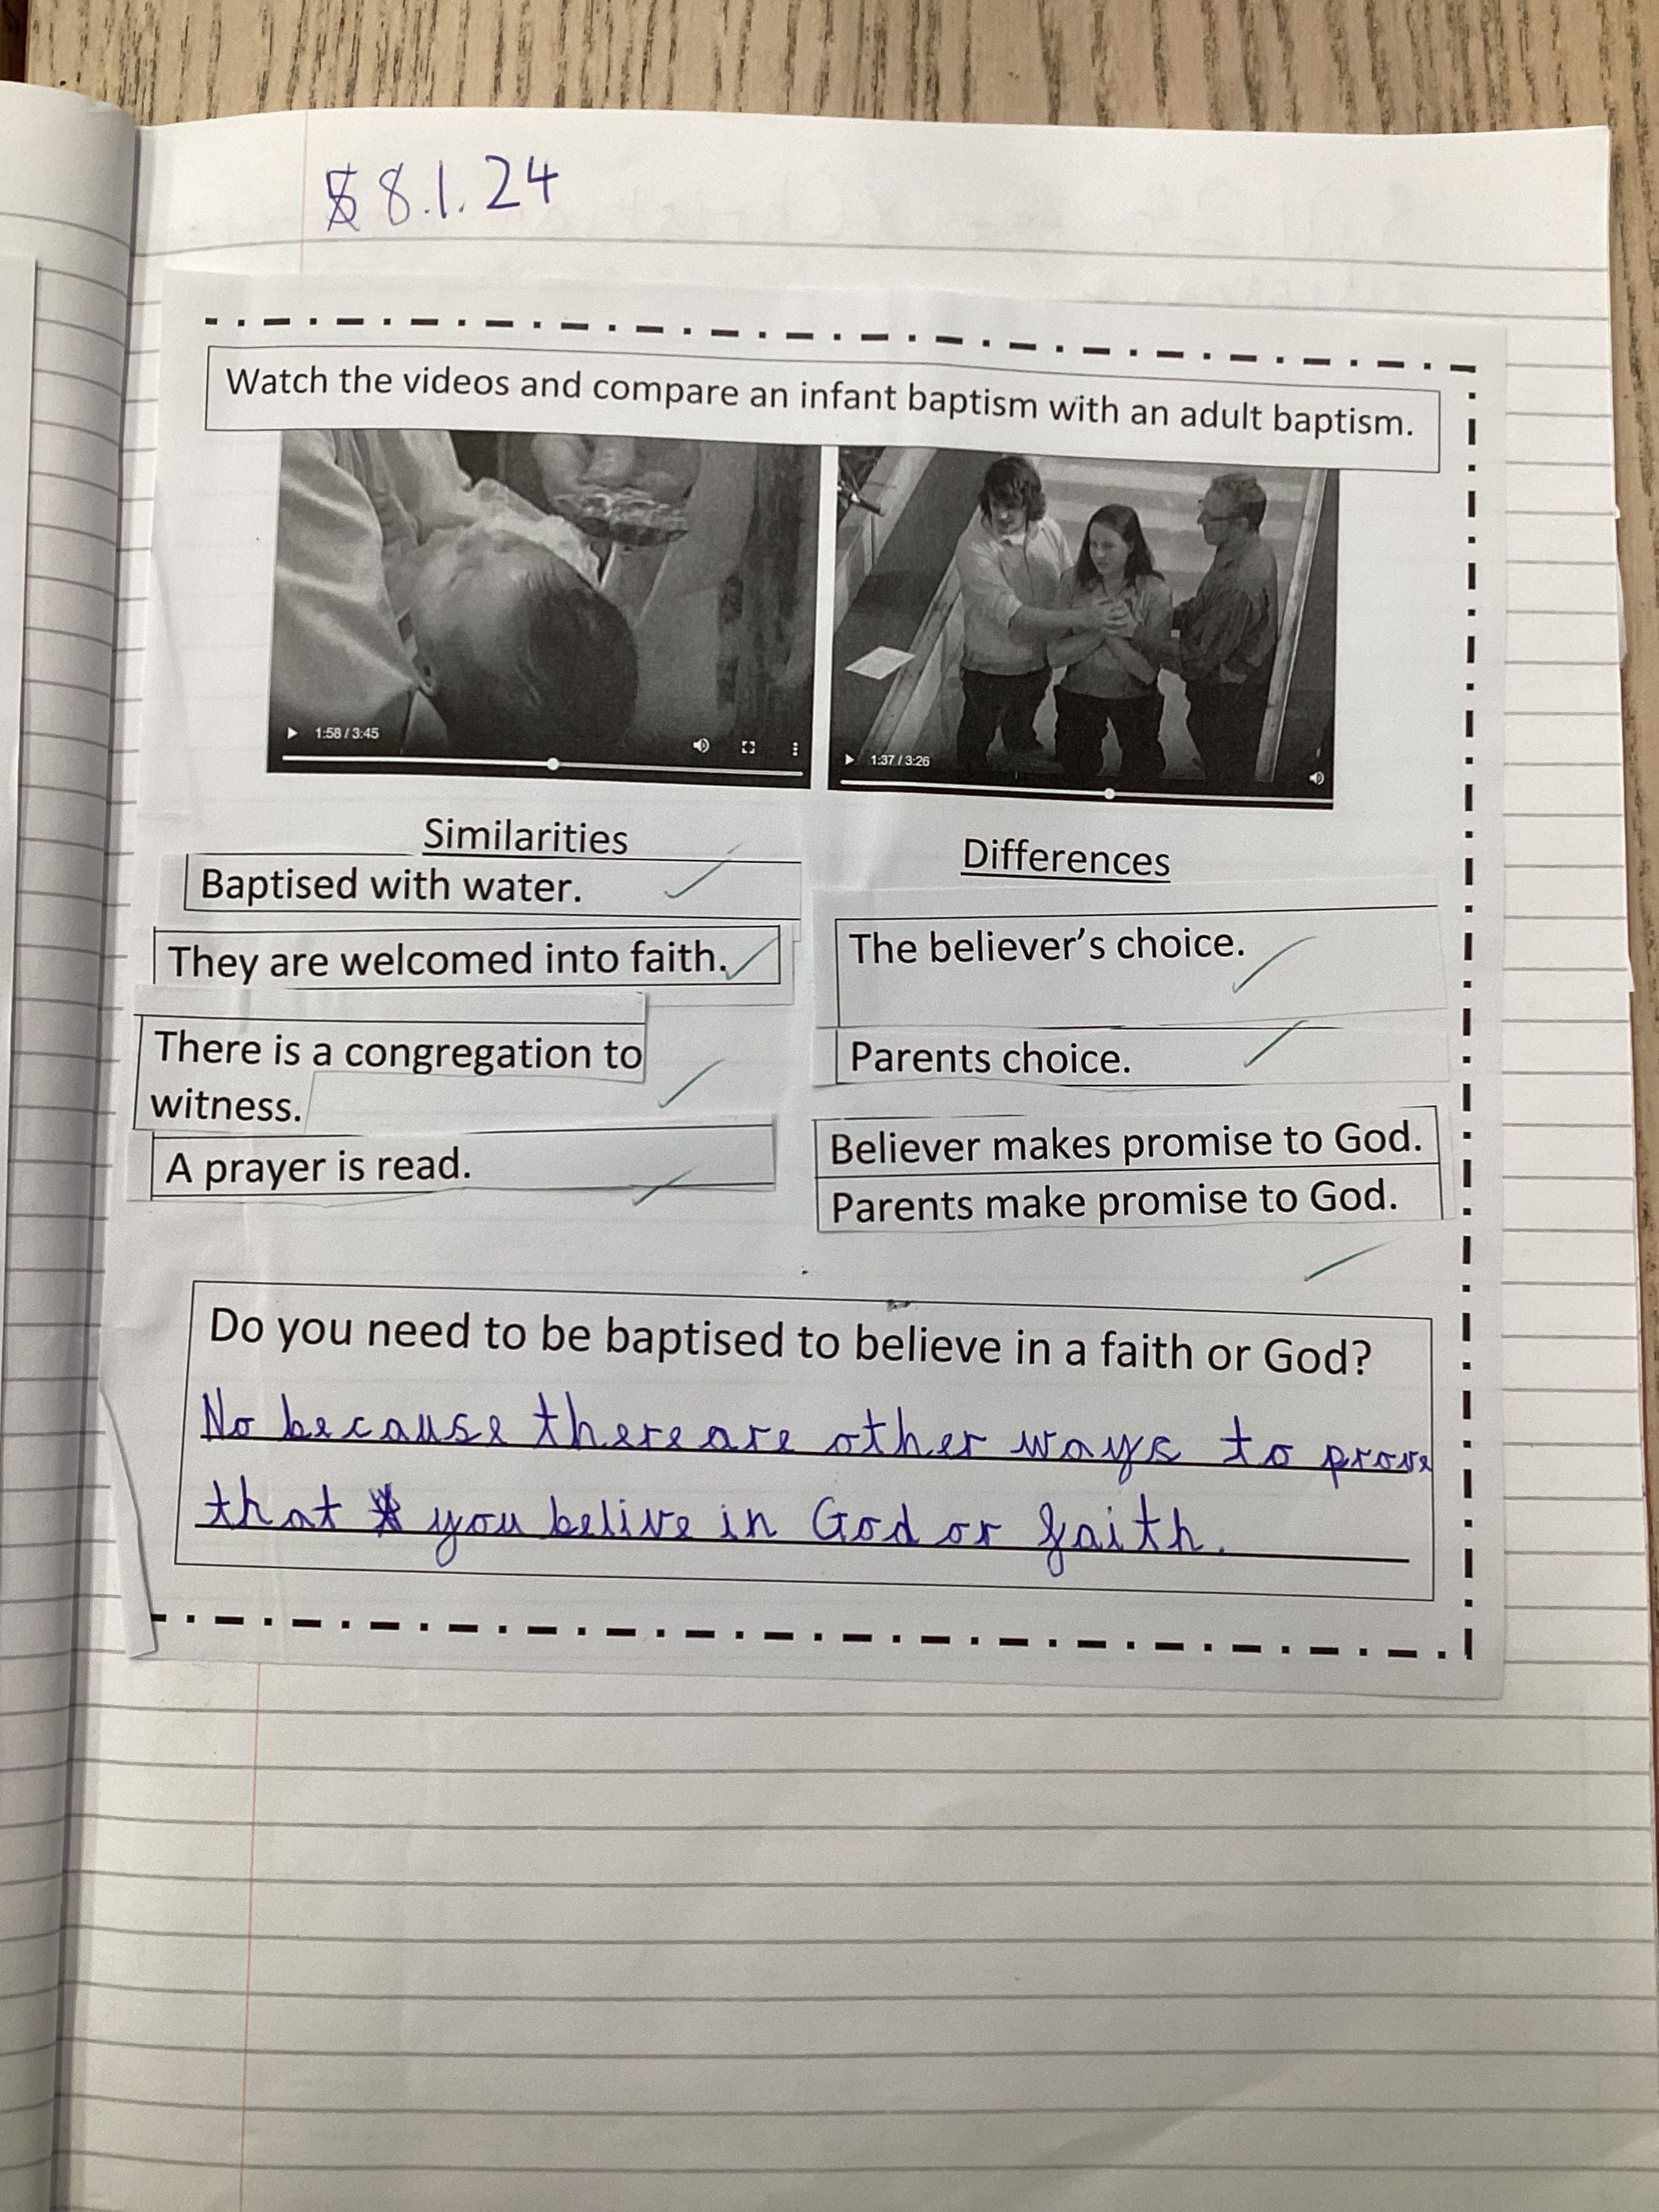 8.1.24
Watch the videos and compare an infant baptism with an adult baptism.
1:58 / 3:45
1:37 / 3:26
Similarities
Baptised with water.
They are welcomed into faith.
There is a congregation to
witness.
A prayer is read.
Differences
The believer's choice.
Parents choice.
Believer makes promise to God.
Parents make promise to God.
Do you need to be baptised to believe in a faith or God?
No because there are other ways to prove
that you belive in God or faith.